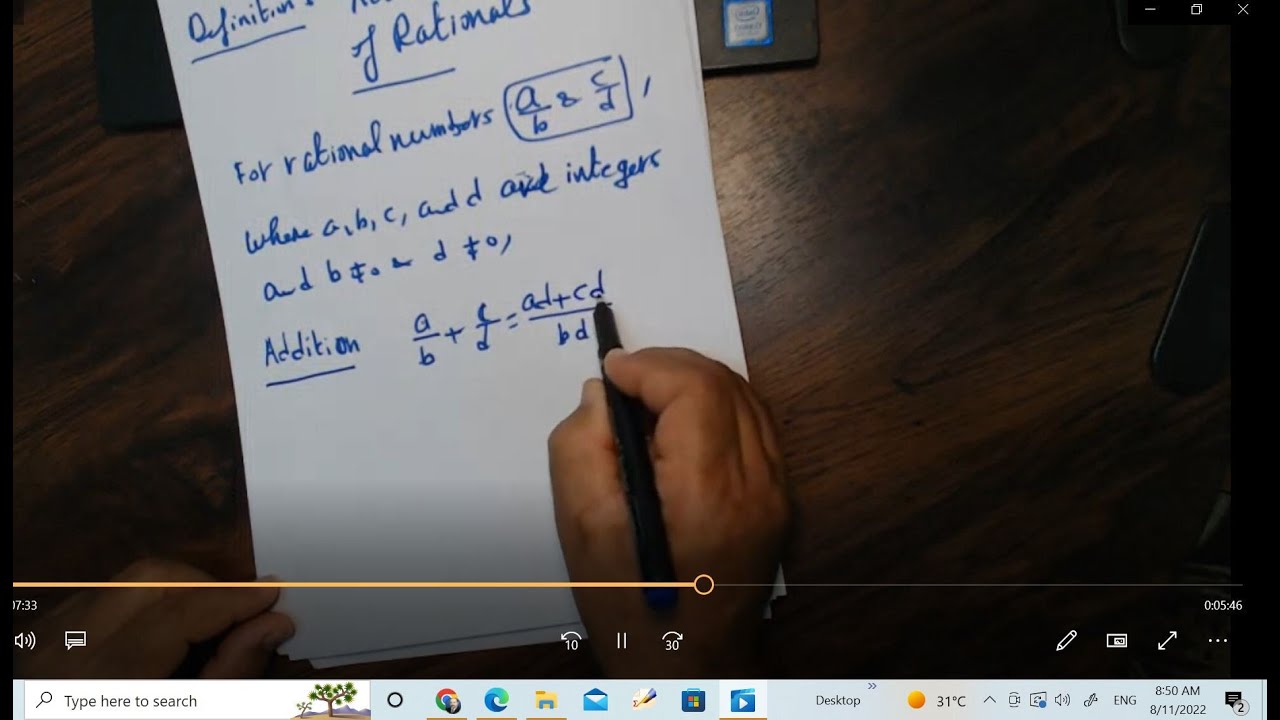 Definition:
of Rationals
For rational numbers (a/b & c/d),
where a, b, c, and d are integers
and b ≠ 0 & d ≠ 0,
Addition a/b + c/d = ad+cd/bd
intel
07:33
0:05:46
10
30
Type here to search
Desktop
31°C
ENG
8:50 AM
8/11/2022
2